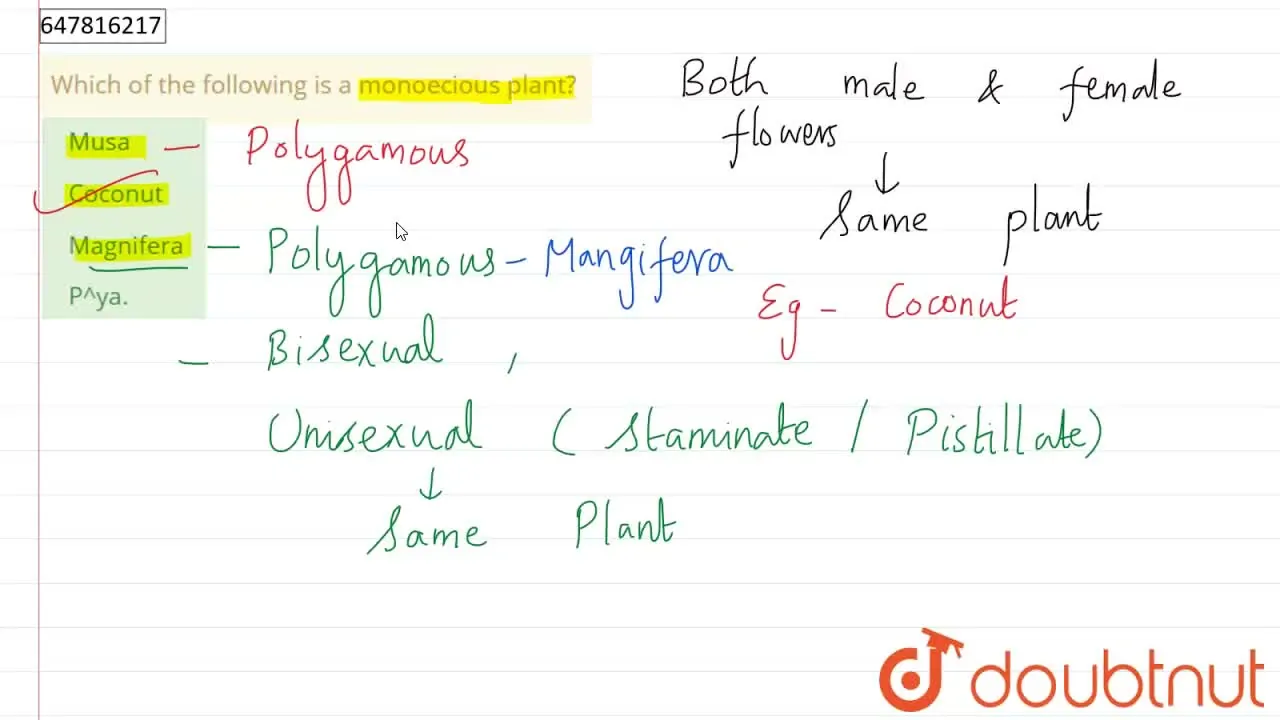 647816217
Which of the following is a monoecious plant?
Musa - Polygamous
Coconut
Magnifera - Polygamous - Mangifera
P^ya.
- Bisexual,
Unisexual (Staminate / Pistillate)
↓
Same Plant
Both male & female
flowers
↓
Same plant
Eg - Coconut
doubtnut